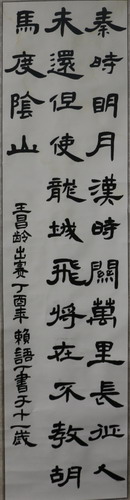 秦時明月漢時關萬里長征人
未還但使龍城飛將在不教胡
馬度陰山
王昌齡出塞丁酉年賴語丁書于十一歲